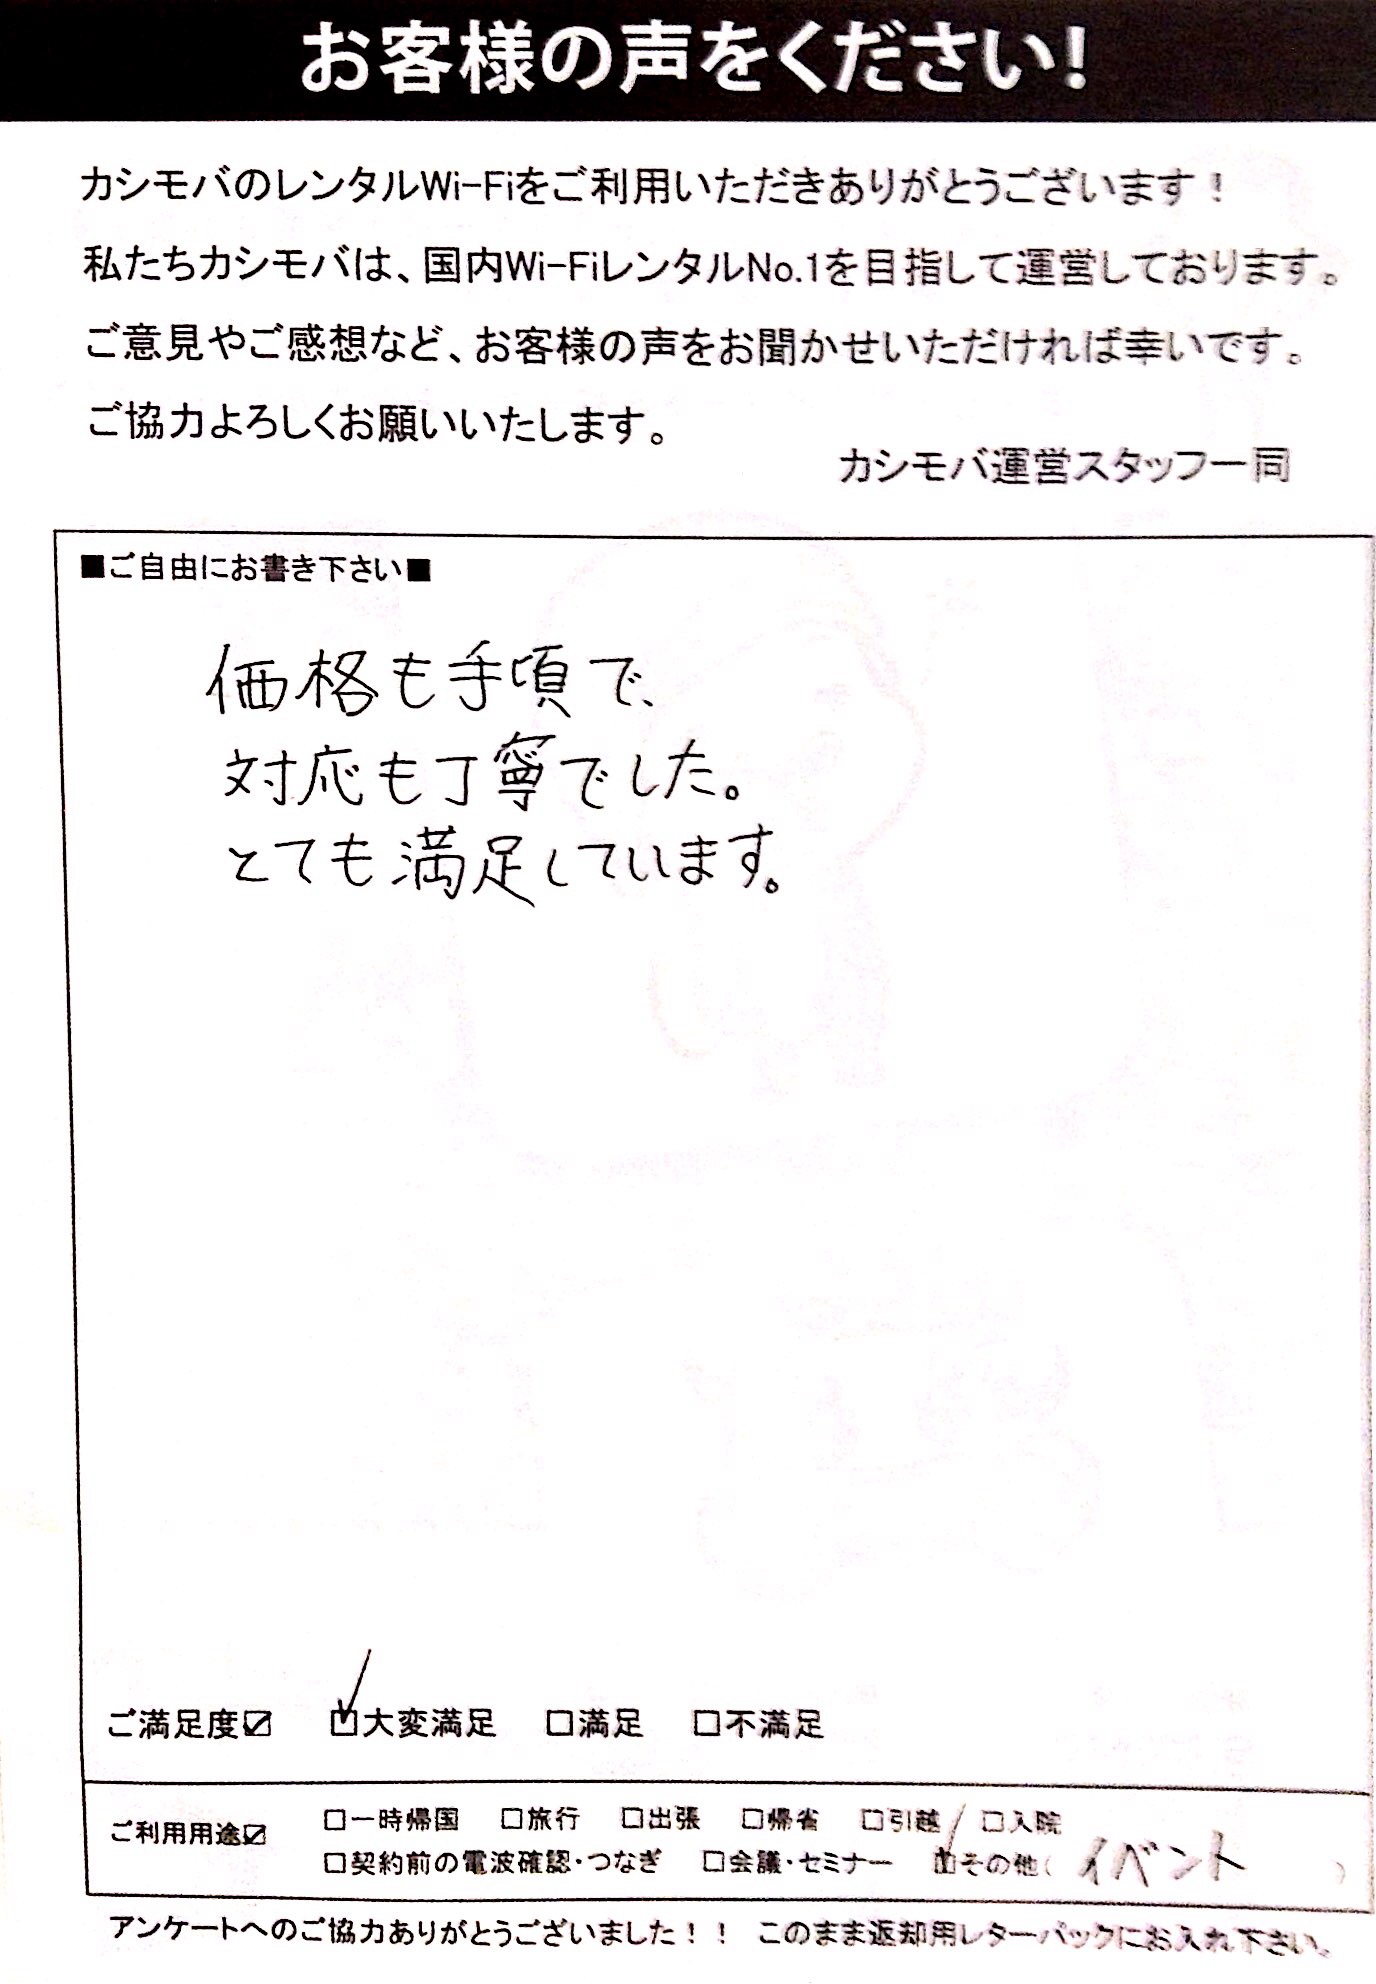 お客様の声をください!
カシモバのレンタルWi-Fiをご利用いただきありがとうございます！
私たちカシモバは、国内Wi-FiレンタルNo.1を目指して運営しております。
ご意見やご感想など、お客様の声をお聞かせいただければ幸いです。
ご協力よろしくお願いいたします。
カシモバ運営スタッフ一同
■ご自由にお書き下さい■
価格も手頃で、
対応も丁寧でした。
とても満足しています。
ご満足度☑ ☑大変満足 □満足 □不満足
ご利用用途☑ □一時帰国 □旅行 □出張 □帰省 □引越 □入院
□契約前の電波確認・つなぎ □会議・セミナー ☑その他( イベント )
アンケートへのご協力ありがとうございました！！ このまま返却用レターパックにお入れ下さい。